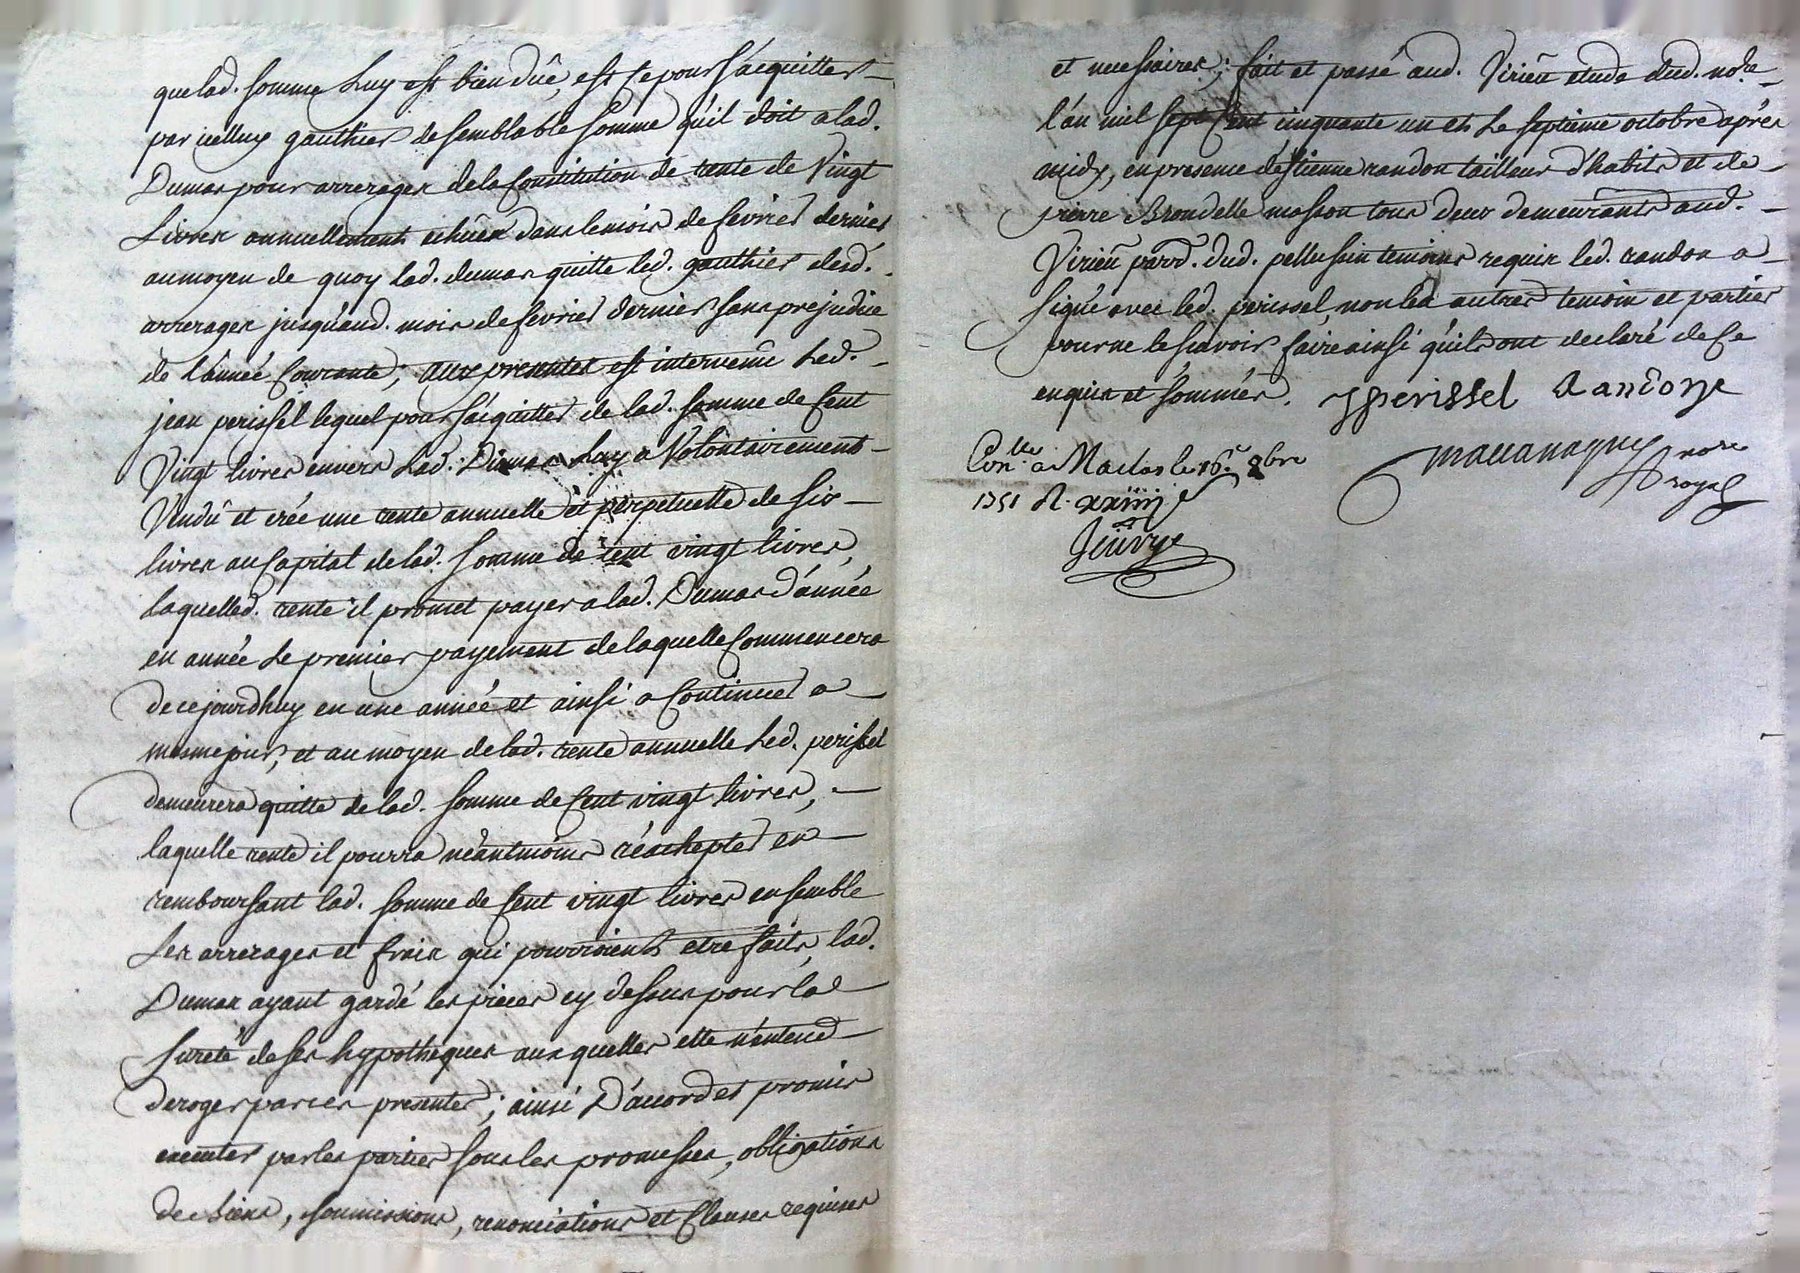 que lad. somme luy est bien dûe, est ce pour s'acquitter
par icelluy gauthier de semblable somme qu'il doit a lad.
Dumas pour arrerages de la Constitution de rente de Vingt
Livres annuellement echües dans le mois de fevrier dernier
au moyen de quoy lad. dumas quitte led. gauthier desd.
arrerages jusqu'aud. mois de fevrier dernier sans prejudice
de l'année Courante; aux presentes est intervenu Led.
jean perissel lequel pour s'acquitter de lad. somme de Cent
Vingt livres envers lad. Dumas Luy a Volontairement
Vendû et crée une rente annuelle et perpetuelle de six
livres au Capital de lad. somme de cent vingt livres,
laquelled. rente il promet payer a lad. Dumas d'année
en année Le premier payement de laquelle Commencera
de ce jourdhuy en une année et ainsi a Continuer a
mesme jour, et au moyen de lad. rente annuelle Led. perissel
demeurera quitte de lad. somme de Cent vingt livres,
laquelle rente il pourra néantmoins réachepter en
remboursant lad. somme de Cent vingt livres ensemble
Les arrerages et frais qui pourroient etre faits, lad.
Dumas ayant gardé les pieces cy dessus pour la
sureté de ses hypotheques aux quelles elle n'entend
deroger par ces presentes; ainsi D'accord et promis
executer par les parties sous les promesses, obligations
de biens, soumissions, renonciations et Clauses requises
et necessaires; fait et passé aud. Virieu etude dud. no.re
l'an mil sept Cent cinquante un et Le septieme octobre aprés
midy, en presence d'Estienne randon tailleur d'habits et de
pierre Brondelle masson tous deux demeurants aud.
Virieu parr. dud. pellussin temoins requis led. randon a
signé avec led. perissel, non les autres temoin et parties
pour ne le sçavoir faire ainsi qu'ils ont declaré de ce
enquis et sommés. jperissel Randon
Con.lle a Maclas le 16.e 8bre
1751 R. xxiiij s
nore
royal